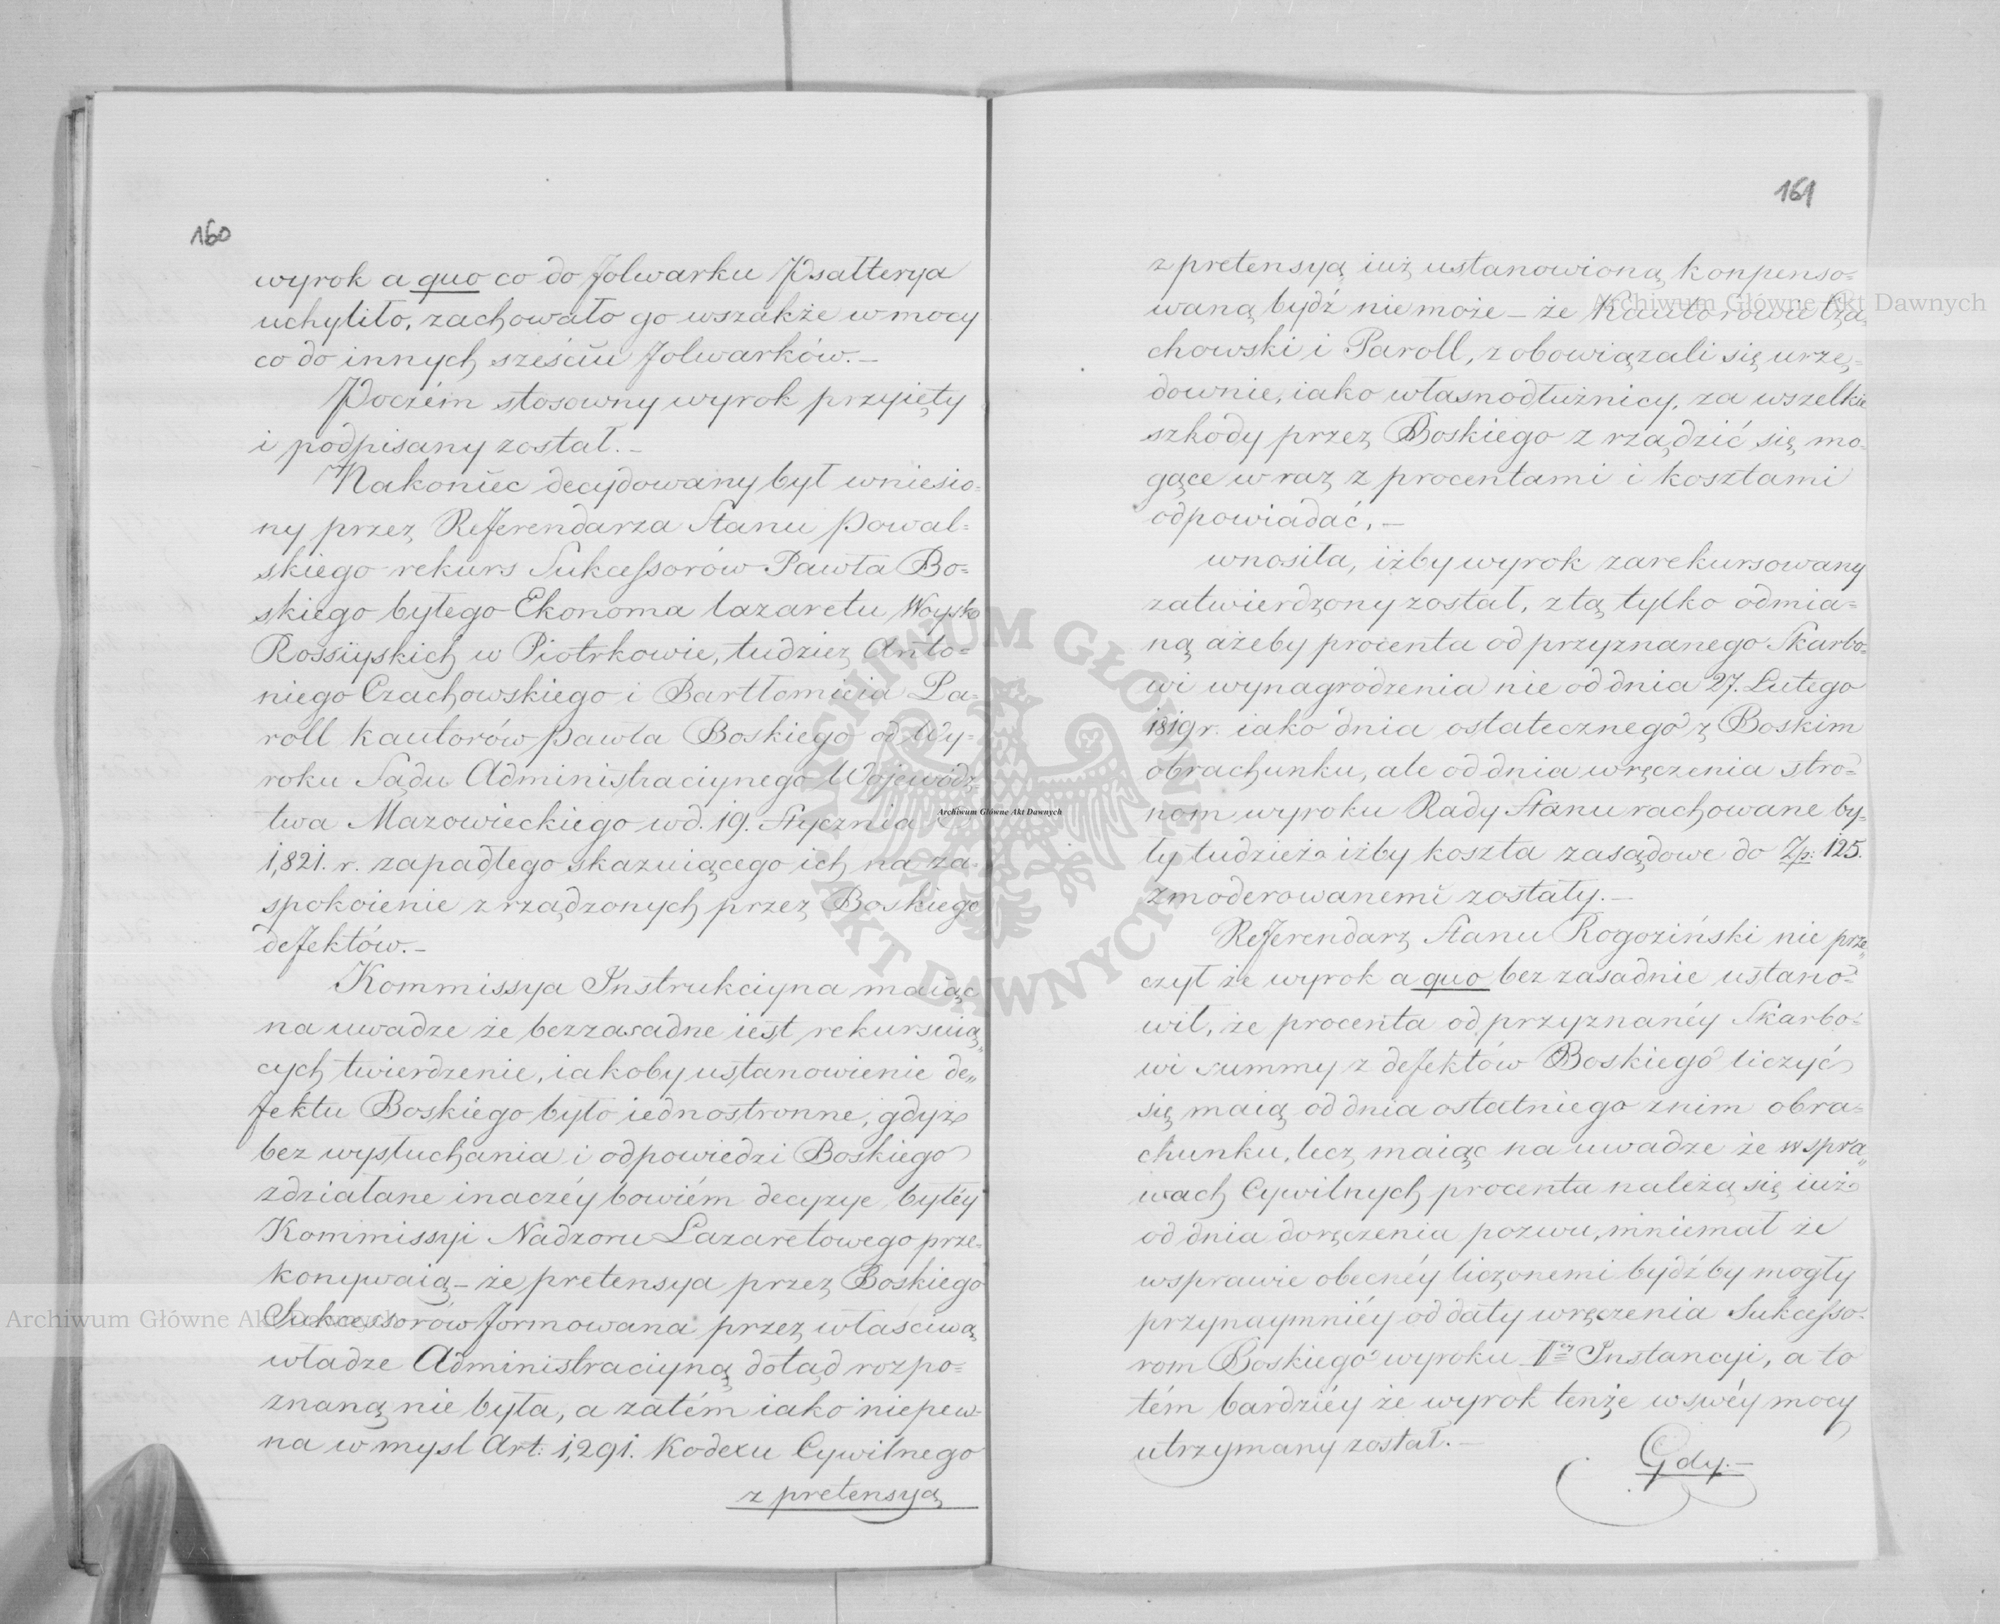 160
wyrok a quo co do folwarku Psałterya
uchyliło, zachowało go wszakże w mocy
co do innych sześciu folwarków.—
Poczém stosowny wyrok przyięty
i podpisany został.—
Nakoniec decydowany był wniesio=
ny przez Referendarza Stanu Powal=
skiego rekurs Sukcessorów Pawła Bo=
skiego byłego Ekonoma lazaretu Woysk
Rossiyskich w Piotrkowie, tudzież Anto=
niego Czachowskiego i Bartłomieia Pa=
roll kautorów Pawła Boskiego od Wy=
roku Sądu Administracyinego Wojewódz=
twa Mazowieckiego w d. 19. Stycznia
1,821. r. zapadłego skazuiącego ich na za=
spokoienie zrządzonych przez Boskiego
defektów.—
Kommissya Instrukcyina maiąc
na uwadze że bezzasadne iest rekursuią„
cych twierdzenie, iakoby ustanowienie de„
fektu Boskiego było iednostronne, gdyż
bez wysłuchania i odpowiedzi Boskiego
zdziałane inaczéy bowiém decyzye byłéy
Kommissyi Nadzoru Lazaretowego prze=
konywaią — że pretensya przez Boskiego
Sukcessorów formowana przez właściwą
władze Administracyiną dotąd rozpo=
znaną nie była, a zatém iako niepew=
na w mysl Art: 1,291. Kodexu Cywilnego
z pretensyą
161
z pretensyą iuż ustanowioną konpenso=
waną bydź nie może — że Kautorowie Cza=
chowski i Paroll, zobowiązali się urzę=
downie, iako własnodłużnicy, za wszelkie
szkody przez Boskiego zrządzić się mo=
gące wraz z procentami i kosztami
odpowiadać,—
wnosiła, iżby wyrok zarekursowany
zatwierdzony został, z tą tylko odmia=
ną ażeby procenta od przyznanego Skarbo=
wi wynagrodzenia nie od dnia 27. Lutego
1819 r. iako dnia ostatecznego z Boskim
obrachunku, ale od dnia wręczenia stro=
nom wyroku Rady Stanu rachowane by=
ły tudzież iżby koszta zasądowe do Zp: 125.
zmoderowanemi zostały.—
Referendarz Stanu Rogoziński nie prze„
czył że wyrok a quo bezzasadnie ustano=
wił, że procenta od przyznanéy Skarbo=
wi summy z defektów Boskiego liczyć
się maią od dnia ostatniego z nim obra=
chunku, lecz maiąc na uwadze że w spra„
wach Cywilnych procenta należą się iuż
od dnia doręczenia pozwu, mniemał że
w sprawie obecnéy liczonemi bydź by mogły
przynaymniéy od daty wręczenia Sukcesso=
rom Boskiego wyroku Iéy Instancyi, a to
tém bardziéy że wyrok tenże w swéy mocy
utrzymany został.—
Gdy.—
Archiwum Główne Akt Dawnych
Archiwum Główne Akt Dawnych
Archiwum Główne Akt Dawnych
ARCHIWUM GŁÓWNE AKT DAWNYCH